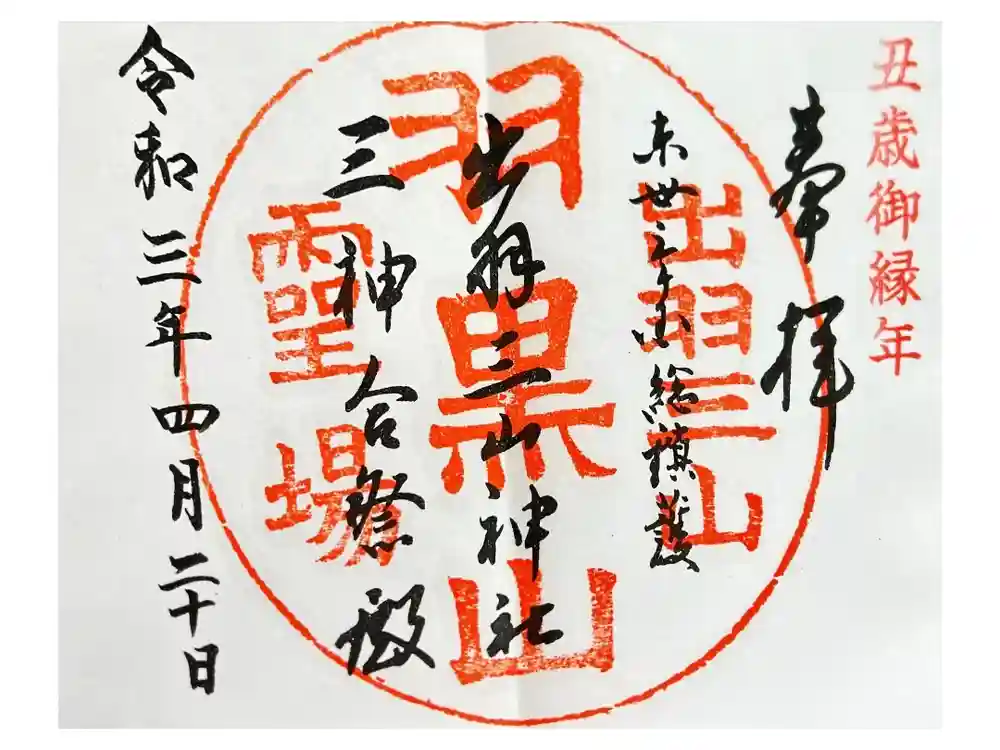 丑歳御縁年
奉拝
東卅三ヶ国総鎮護
出羽三山
出羽三山神社
羽黒山
三神合祭殿
霊場
令和三年四月二十日